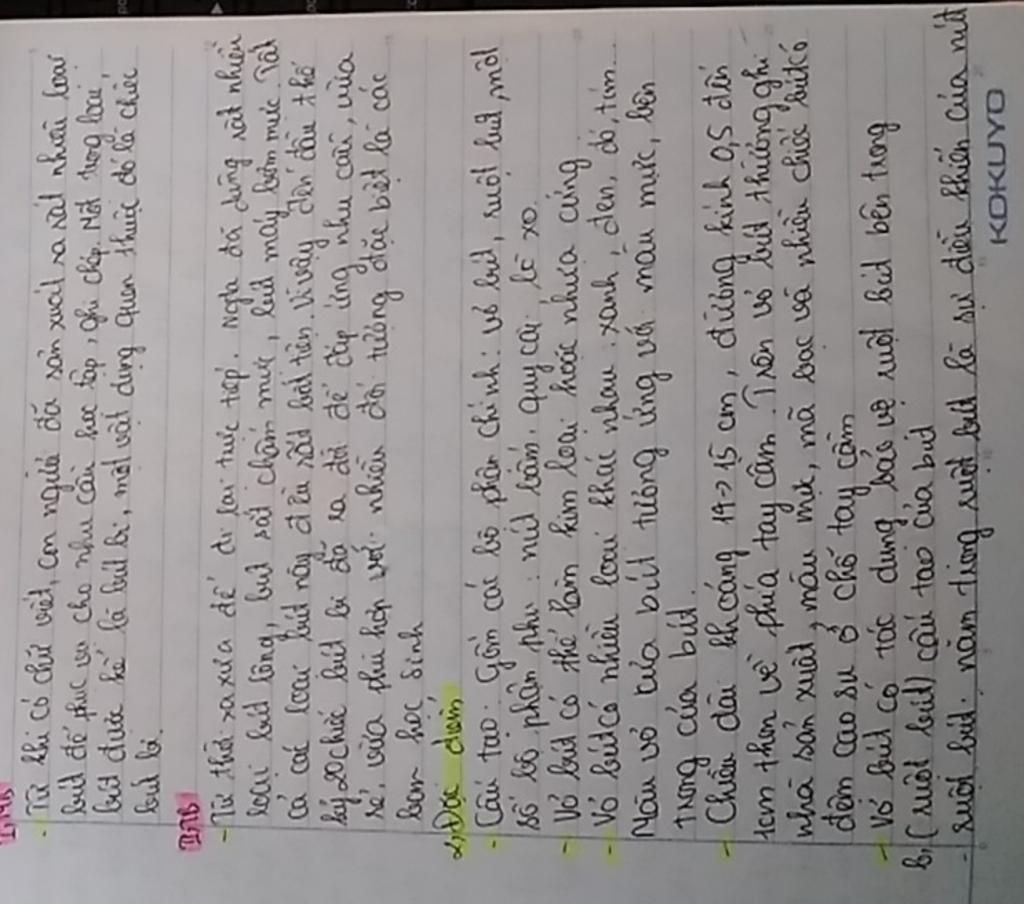 I, MB
- Từ khi có chữ viết, con người đã sản xuất ra rất nhiều loại
bút để phục vụ cho nhu cầu học tập, ghi chép. Một trong loại
bút được kể là bút bi, một vật dụng quen thuộc đó là chiếc
bút bi.
II, TB
- Từ thời xa xưa để đi lại trực tiếp. Ngta đã dùng rất nhiều
loại bút lông, bút sắt chấm mực, bút máy bơm mực. Tất
cả các loại bút này đều rất bất tiện. Vì vậy đến đầu thế
kỷ 20 chiếc bút bi đã ra đời để đáp ứng nhu cầu, vừa
rẻ, vừa phù hợp với nhiều đối tượng đặc biệt là các
bạn học sinh
2, Đặc điểm
- Cấu tạo: Gồm các bộ phận chính: vỏ bút, ruột bút, một
số bộ phận phụ: nút bấm, quy cài, lò xo.
- Vỏ bút có thể làm kim loại hoặc nhựa cứng
- Vỏ bút có nhiều loại khác nhau: xanh, đen, đỏ, tím...
Màu vỏ của bút tương ứng với màu mực, bên
trong của bút.
- Chiều dài khoảng 14->15 cm, đường kính 0,5 đến
1cm thon về phía tay cầm. Trên vỏ bút thường ghi
nhà sản xuất, màu mực, mã bạc và nhiều chiếc bút có
đệm cao su ở chỗ tay cầm
- Vỏ bút có tác dụng bảo vệ ruột bút bên trong
b, (ruột bút) cấu tạo của bút
- ruột bút: nằm trong ruột bút là sự điều khiển của nút
KOKUYO